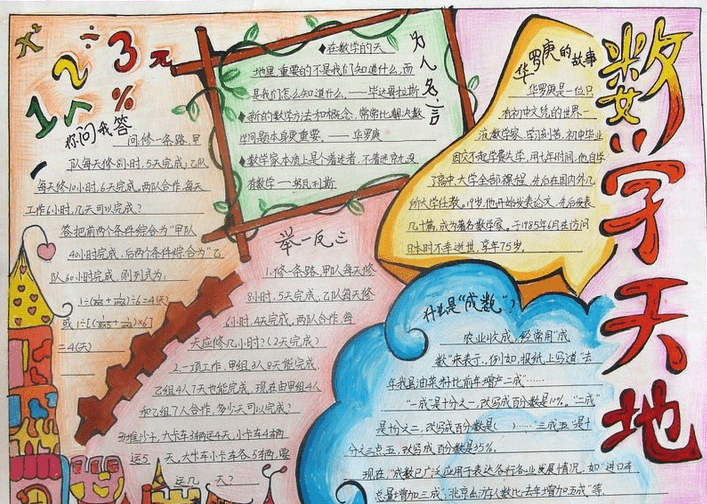 数学天地
1 2 3
x² ÷ √ % π
你问我答
问修一条路,甲
队每天修8小时,5天完成;乙队
每天修10小时,6天完成,两队合作,每天
工作6小时,几天可以完成?
答把前两个条件综合为“甲队
40小时完成,后两个条件综合为“乙
队60小时完成,则列式为:
=4(天)
在数学的天
地里,重要的不是我们知道什么,而
是我们怎么知道什么。——毕达哥拉斯
新的数学方法和概念,常常比解决数
学问题本身更重要。——华罗庚
数学家本质上是个着迷者,不着迷就没
有数学——努瓦利斯
为人名言
华罗庚的故事
华罗庚是一位只
有初中文凭的世界一
流数学家。学习刻苦,初中毕业
因交不起学费失学,用七年时间,他自学
了高中、大学全部课程。先后在国内外几
所大学任教。19岁,他开始发表论文。先后发表
几十篇,成为著名数学家。于1985年6月去访问
日本时不幸逝世,享年75岁。
举一反三
1.修一条路,甲队每天修
8小时,5天完成,乙队每天修
6小时,4天完成,两队合作,每
天应修几小时?(2天完成)
2.一项工作,甲组3人8天能完成,
乙组4人7天也能完成,现在由甲组4人
和乙组7人合作,多少天可以完成?
沙,大卡车3辆运4天,小卡车4辆
运5天,大卡车小卡车各5辆,要
运几天?
什么是“成数”?
农业收成,经常用“成
数”来表示。例如,报纸上写道“去
年我县油菜籽比前年增产二成”……
“一成”是十分之一,改写成百分数是10%。“二成”
是十分之二,改写成百分数是( )……“三成五”是十
分之三点五,改写成百分数是35%。
现在,“成数已广泛应用于表达各行各业发展情况,如“进口车
总量增加三成”“北京出游人数比去年增加六成”等。